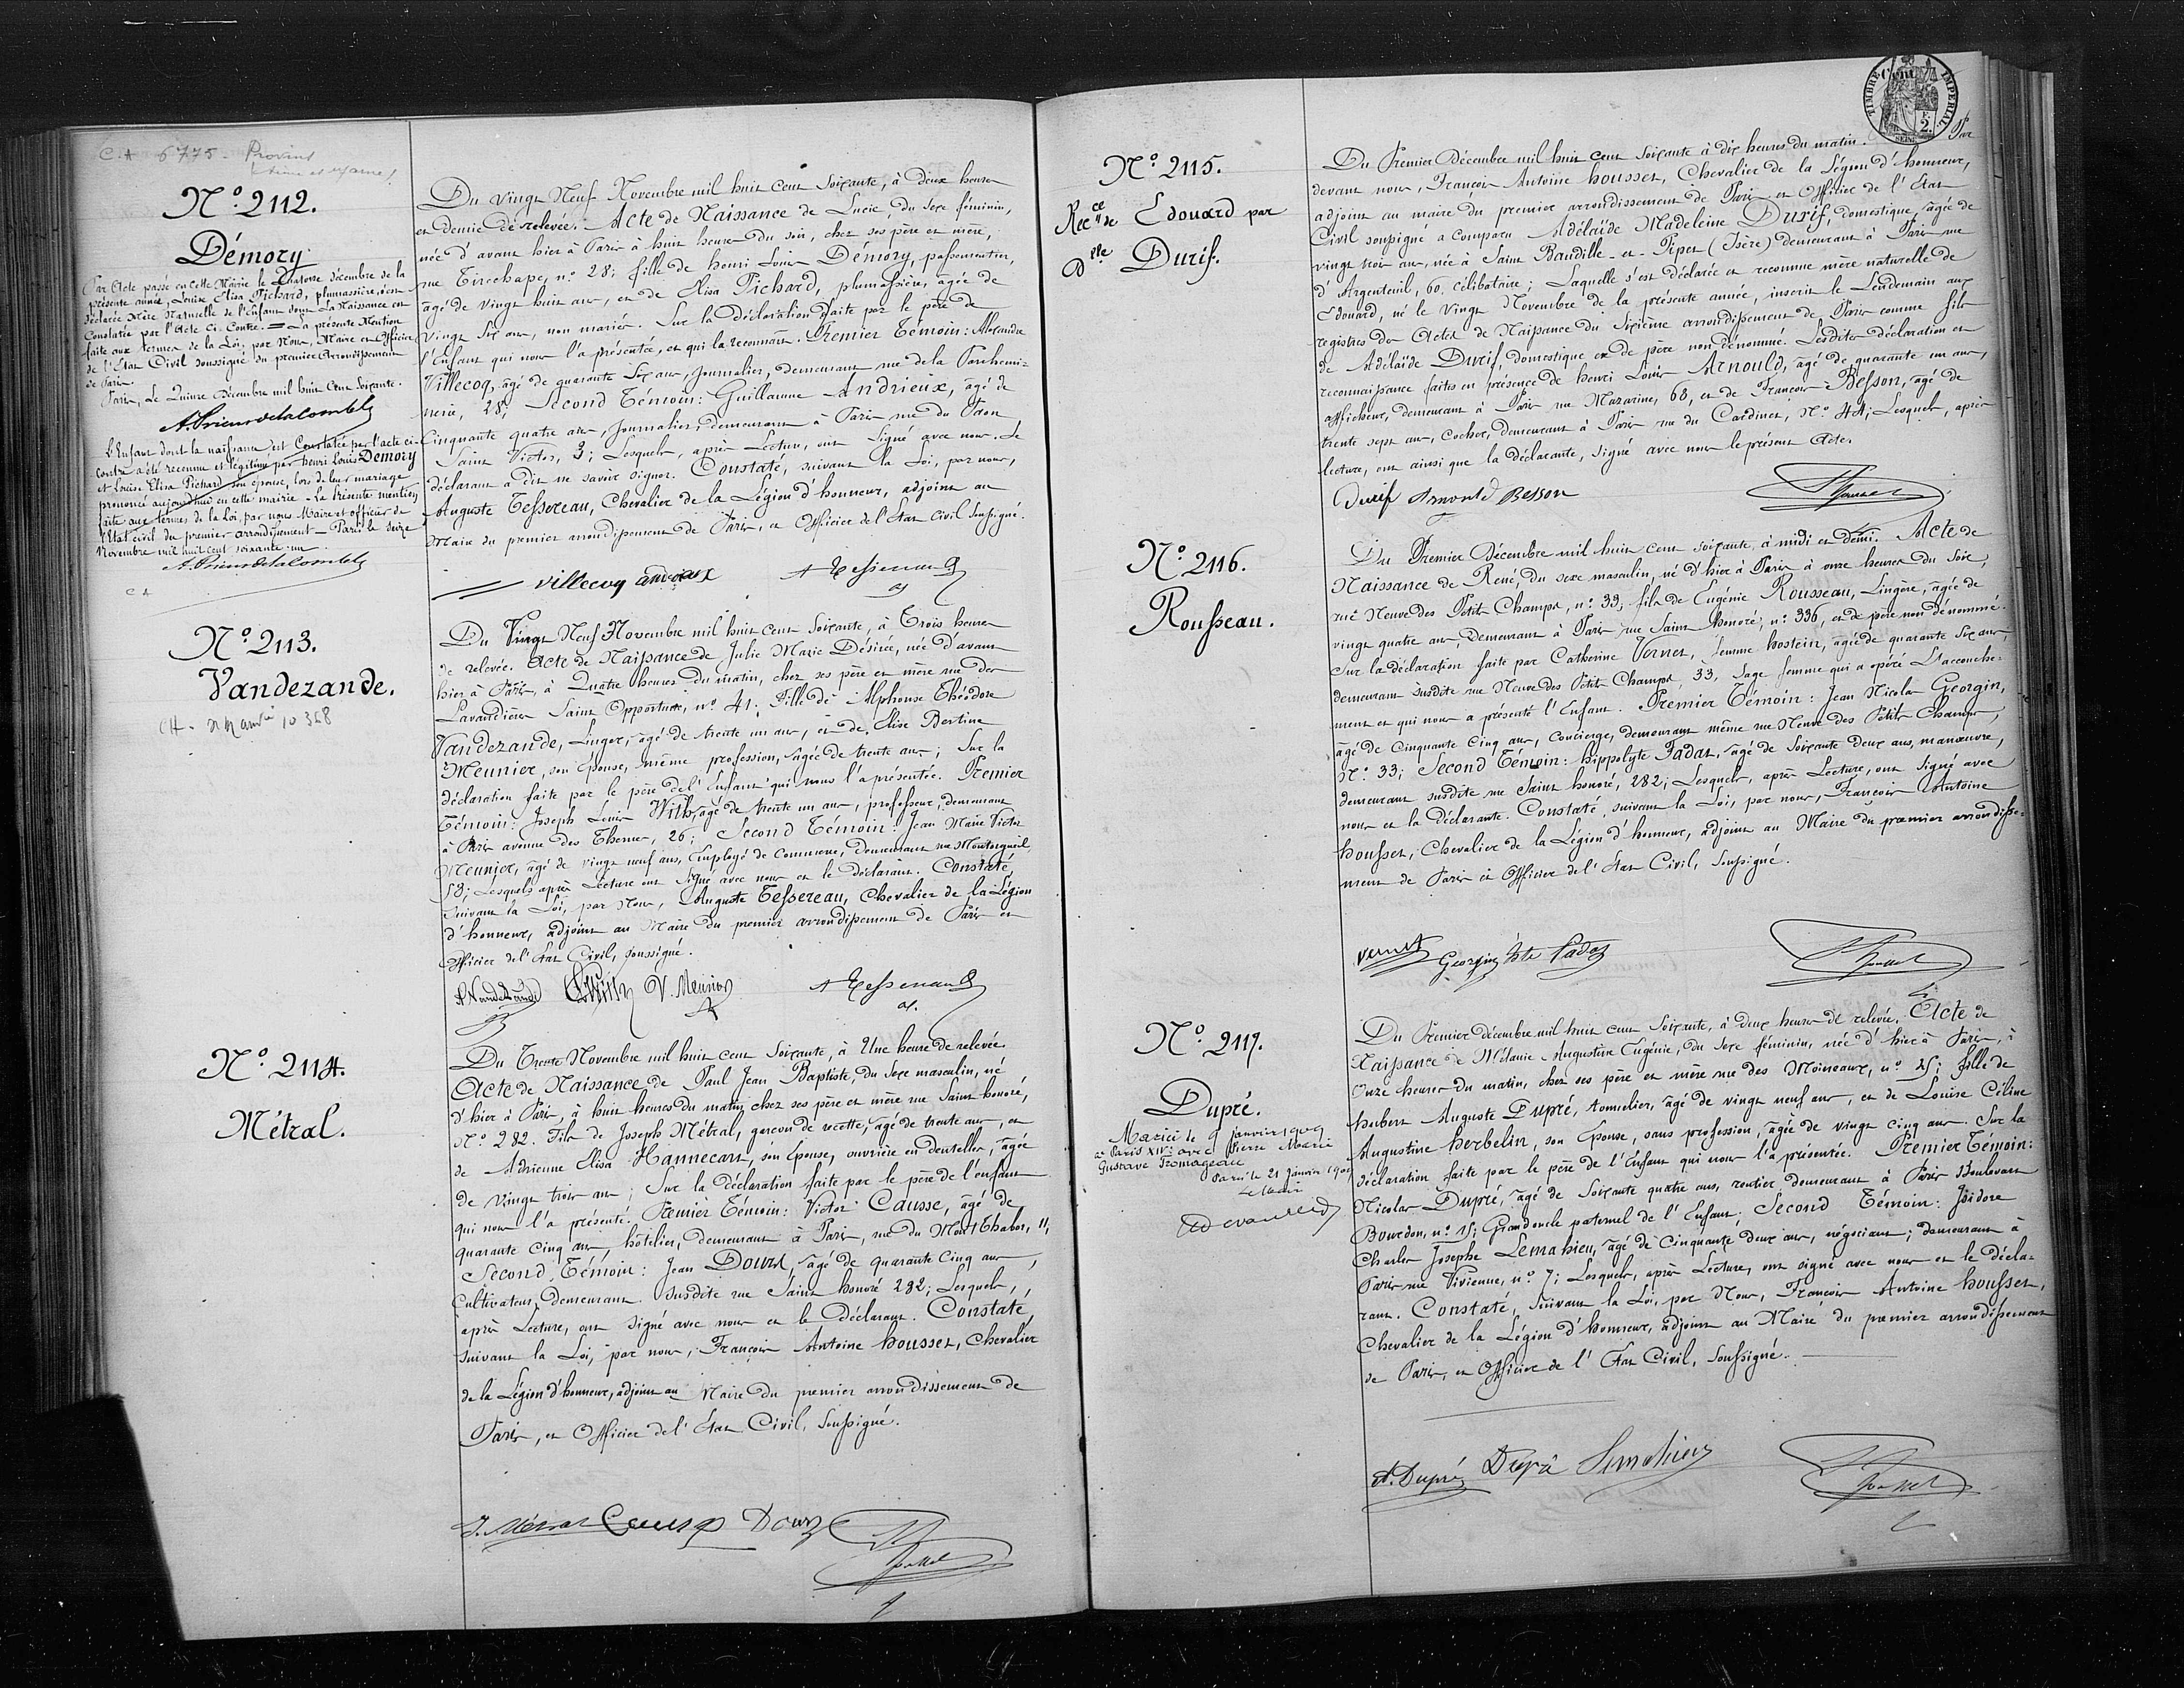 C.A 6775 - Provins
Nº 2112.
Démory
Par Acte passé en cette Mairie le Quatorze décembre de la
présente année, Louise Elisa Pichard, plumassière, s'est
déclarée Mère Naturelle de l'Enfant dont la Naissance est
Constatée par l'Acte Ci-Contre. = La présente Mention
faite aux termes de la Loi, par Nous, Maire et Officier
de l'Etat Civil soussigné du premier Arrondissement
de Paris.
Paris, Le Quinze Décembre mil huit Cent soixante.
L'Enfant dont la naissance est Constatée par l'acte ci-
contre a été reconnu et légitimé par henri Louis Démory
et Louise Elisa Pichard son épouse, lors de leur mariage
prononcé aujourd'hui en cette mairie - La présente mention
faite aux termes de la Loi, par nous Maire et officier de
l'Etat civil du premier arrondissement - Paris le seize
Novembre mil huit cent soixante-un
CA
Du vingt Neuf Novembre mil huit Cent Soixante, à deux heures
et demie de relevée. Acte de Naissance de Lucie, du sexe féminin,
née d'avant hier à Paris à huit heures du soir, chez ses père et mère,
rue Tirechape, n° 28; fille de henri Louis Démory, passementier,
âgé de vingt huit ans, et de Elisa Pichard, plumassière, âgée de
vingt six ans, non mariés. Sur la déclaration faite par le père de
l'Enfant qui nous l'a présentée, et qui la reconnait. Premier Témoin: Alexandre
Villecoq, âgé de quarante six ans, journalier, demeurant rue de la Parchemi-
nerie, 28; Second Témoin: Guillaume Andrieux, âgé de
Cinquante quatre ans, journalier, demeurant à Paris rue du Paon
Saint Victor, 3; Lesquels, après Lecture, ont Signé avec nous. Le
déclarant a dit ne savoir signer. Constaté, suivant la Loi, par nous,
Auguste Tessereau, Chevalier de la Légion d'honneur, adjoint au
Maire du premier arrondissement de Paris, et Officier de l'Etat Civil soussigné.
Villecoq andrieux A Tessereau
Nº 2113.
Vandezande.
Du Vingt Neuf Novembre mil huit Cent Soixante, à Trois heures
de relevée. Acte de Naissance de Julie Marie Désirée, née d'avant
hier à Paris, à Quatre heures du matin, chez ses père et mère rue des
Lavandières Saint Opportune, n° 41; Fille de Alphonse Théodore
Vandezande, Linger, âgé de trente un ans, et de Elise Bertine
Meunier, son épouse, même profession, âgée de trente ans; Sur la
déclaration faite par le père de l'Enfant qui nous l'a présentée. Premier
Témoin: Joseph Louis Wilb, âgé de trente un ans, professeur, demeurant
à Paris avenue des Thernes, 26; Second Témoin: Jean Marie Victor
Meunier, âgé de vingt neuf ans, Employé de Commerce, demeurant rue Montorgueil,
53; Lesquels après Lecture ont Signé avec nous et le déclarant. Constaté,
suivant la Loi, par Nous, Auguste Tessereau, Chevalier de la Légion
d'honneur, adjoint au Maire du premier arrondissement de Paris et
Officier de l'Etat Civil, soussigné.
V. Meunier A Tessereau
Nº 2114.
Métral.
Du Trente Novembre mil huit cent Soixante, à Une heure de relevée.
Acte de Naissance de Paul Jean Baptiste, du sexe masculin, né
d'hier à Paris, à huit heures du matin, chez ses père et mère rue Saint honoré,
N° 282. Fils de Joseph Métral, garçon de recette, âgé de trente ans, et
de Adrienne Elisa Hannecart, son épouse, ouvrière en dentelles, âgée
de vingt trois ans; Sur la déclaration faite par le père de l'enfant
qui nous l'a présenté. Premier Témoin: Victor Causse, âgé de
quarante cinq ans, hôtelier, demeurant à Paris, rue du Mont Thabor, 11;
Second Témoin: Jean Dours, âgé de quarante Cinq ans,
Cultivateur, demeurant susdite rue Saint honoré 282; Lesquels,
après Lecture, ont signé avec nous et le Déclarant. Constaté,
suivant la Loi, par nous, François Antoine housset, Chevalier
de la Légion d'honneur, adjoint au Maire du premier arrondissement de
Paris, et Officier de l'Etat Civil, soussigné.
J. Métral Causse Dours
TIMBRE IMPÉRIAL
SEINE
Nº 2115.
Recce de Edouard par
Dlle Durif.
Du Premier Décembre mil huit cent soixante à dix heures du matin. Par
devant nous, François Antoine housset, Chevalier de la Légion d'honneur,
adjoint au maire du premier arrondissement de Paris et Officier de l'Etat
Civil soussigné a comparu Adélaïde Madeleine Durif, domestique, âgée de
vingt trois ans, née à Saint Baudille-et-Pipet (Isère) demeurant à Paris rue
d'Argenteuil, 60, célibataire; Laquelle s'est déclarée et reconnue mère naturelle de
Edouard, né le vingt Novembre de la présente année, inscrit le Lendemain aux
registres des Actes de Naissance du Sixième arrondissement de Paris comme fils
de Adélaïde Durif, domestique et de père non dénommé. Lesdites déclaration et
reconnaissance faites en présence de henri Louis Arnould, âgé de quarante un ans,
afficheur, demeurant à Paris rue Mazarine, 68, et de François Besson, âgé de
trente sept ans, Cocher, demeurant à Paris rue du Cardinet, N° 44; Lesquels, après
lecture, ont ainsi que la déclarante, signé avec nous le présent Acte.
Durif Arnould Besson
Nº 2116.
Rousseau.
Du Premier Décembre mil huit cent soixante, à midi et demi. Acte de
Naissance de René, du sexe masculin, né d'hier à Paris à onze heures du soir,
rue Neuve des Petits Champs, n° 33; fils de Eugénie Rousseau, Lingère, âgée de
vingt quatre ans, demeurant à Paris rue Saint honoré, n° 336, et de père non dénommé.
Sur la déclaration faite par Catherine Vernet, femme hostein, âgée de quarante six ans,
demeurant susdite rue Neuve des Petits Champs 33, Sage femme qui a opéré L'accouche-
ment et qui nous a présenté l'Enfant. Premier Témoin: Jean Nicolas Georgin,
âgé de Cinquante Cinq ans, Concierge, demeurant même rue Neuve des Petits Champs,
N° 33; Second Témoin: hippolyte Padat, âgé de Soixante deux ans, manœuvre,
demeurant susdite rue Saint honoré, 282; Lesquels, après Lecture, ont signé avec
nous et la déclarante. Constaté, suivant la Loi, par nous, François Antoine
housset, Chevalier de la Légion d'honneur, adjoint au Maire du premier arrondisse-
ment de Paris et Officier de l'Etat Civil, soussigné.
Vernet Georgin
Nº 2117.
Dupré.
Marié le 9 janvier 1909
à Paris XIVe avec Pierre Marie
Gustave Fromageau
Paris le 21 Janvier
Le Maire
Du Premier décembre mil huit cent Soixante, à deux heures de relevée. Acte de
Naissance de Mélanie Augustine Eugénie, du Sexe féminin, née d'hier à Paris, à
Onze heures du matin, chez ses père et mère rue des Moineaux, n° 25; fille de
hubert Auguste Dupré, tonnelier, âgé de vingt neuf ans, et de Louise Céline
Augustine herbelin, son épouse, sans profession, âgée de vingt cinq ans. Sur la
déclaration faite par le père de l'Enfant qui nous l'a présentée. Premier Témoin:
Nicolas Dupré, âgé de Soixante quatre ans, rentier demeurant à Paris Boulevart
Bourdon, n° 15; Grand oncle paternel de l'Enfant; Second Témoin: Isidore
Charles Joseph Lemahieu, âgé de Cinquante deux ans, négociant; demeurant à
Paris rue Vivienne, n° 7; Lesquels, après Lecture, ont signé avec nous et le décla-
rant. Constaté, suivant la Loi, par Nous, François Antoine housset,
Chevalier de la Légion d'honneur, adjoint au Maire du premier arrondissement
de Paris, et Officier de l'Etat Civil, soussigné.
A. Dupré Dupré Lemahieu